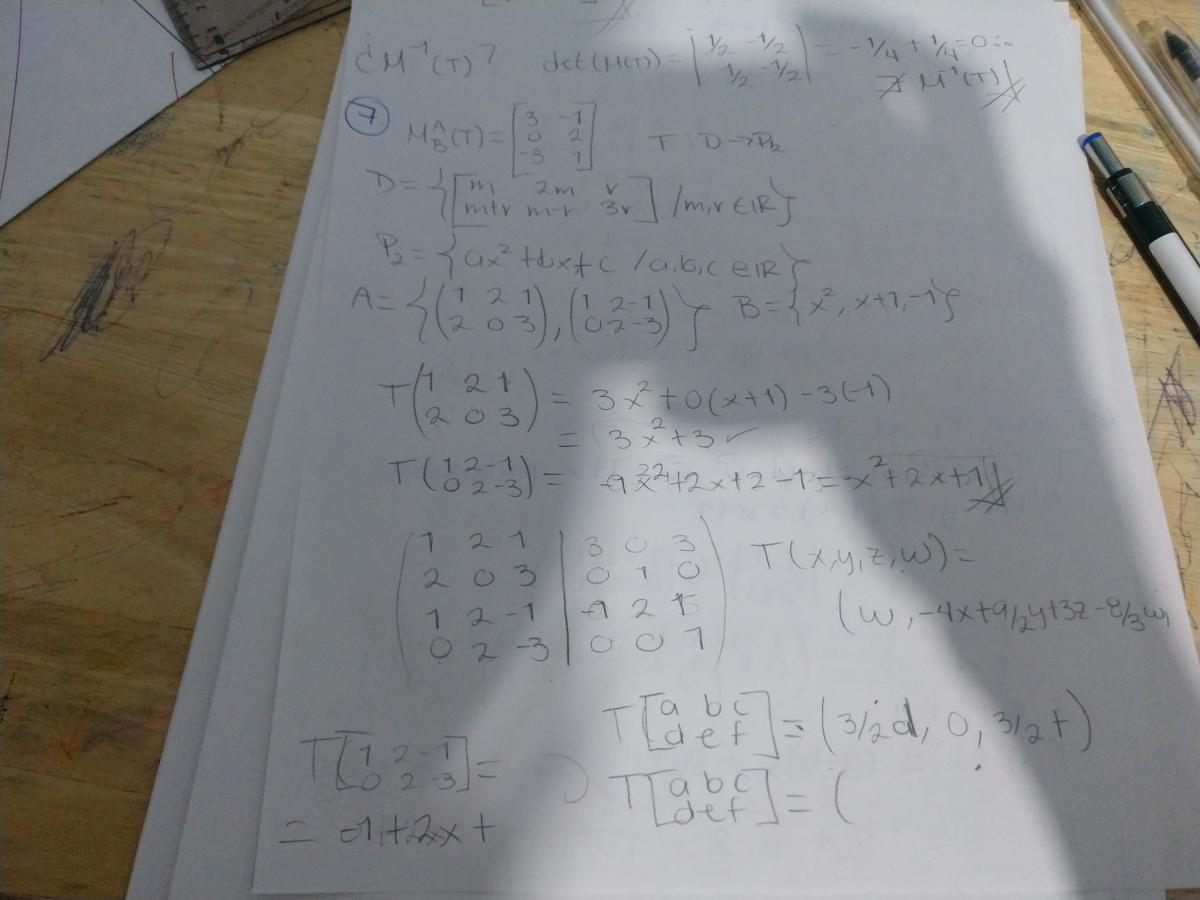 ¿M⁻¹(T)? det(M(T)) = |1/2 -1/2 = -1/4 + 1/4 = 0 ∴
1/2 -1/2| ∄ M⁻¹(T)
7 M^A_B(T) = [3 -1
0 2
-3 1] T: D → P2
D = { [m 2m r
m+r m-r 3r] / m,r ∈ IR }
P2 = { ax² + bx + c / a,b,c ∈ IR }
A = { (1 2 1
2 0 3), (1 2 -1
0 2 -3) } B = { x², x+1, -1 }
T(1 2 1
2 0 3) = 3x² + 0(x+1) - 3(-1)
= 3x² + 3 ✓
T(1 2 -1
0 2 -3) = +2x+2 -1 = -x² + 2x + 1
(1 2 1 | 3 0 3
2 0 3 | 0 1 0
1 2 -1 | 2
0 2 -3 | 0 0 1) T(x,y,z,w) =
(w, -4x+9/2y+3z-8/3w,
T[a b c
d e f] = (3/2d, 0, 3/2f)
T[1 2 -1
0 2 -3] =
T[a b c
d e f] = (
= -1+2x+